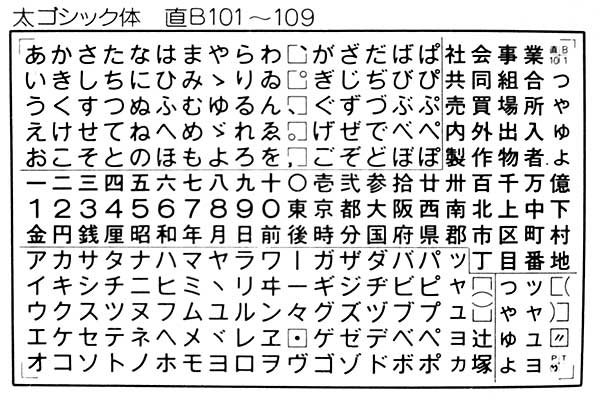 太ゴシック体 直B101～109
あかさたなはまやらわ、がざだばぱ社会事業直B101
いきしちにひみゝりゐ。ぎじぢびぴ共同組合つ
うくすつぬふむゆるん、ぐずづぶぷ売買場所や
えけせてねへめゞれゑ。げぜでべぺ内外出入ゆ
おこそとのほもよろを，ごぞどぼぽ製作物者よ
一二三四五六七八九十〇壱弐参拾廿卅百千万億
1234567890東京都大阪西南北上中下
金円銭厘昭和年月日前後時分国府県郡市区町村
アカサタナハマヤラワーガザダバパッ丁目番地
イキシチニヒミヽリヰ一ギジヂビピャ()っッ(
ウクスツヌフムユルン々グズヅブプュ[]ゃャ)
エケセテネヘメヾレヱ・ゲゼデベペョ辻ゅュ〃
オコソトノホモヨロヲヴゴゾドボポカ塚ょョ